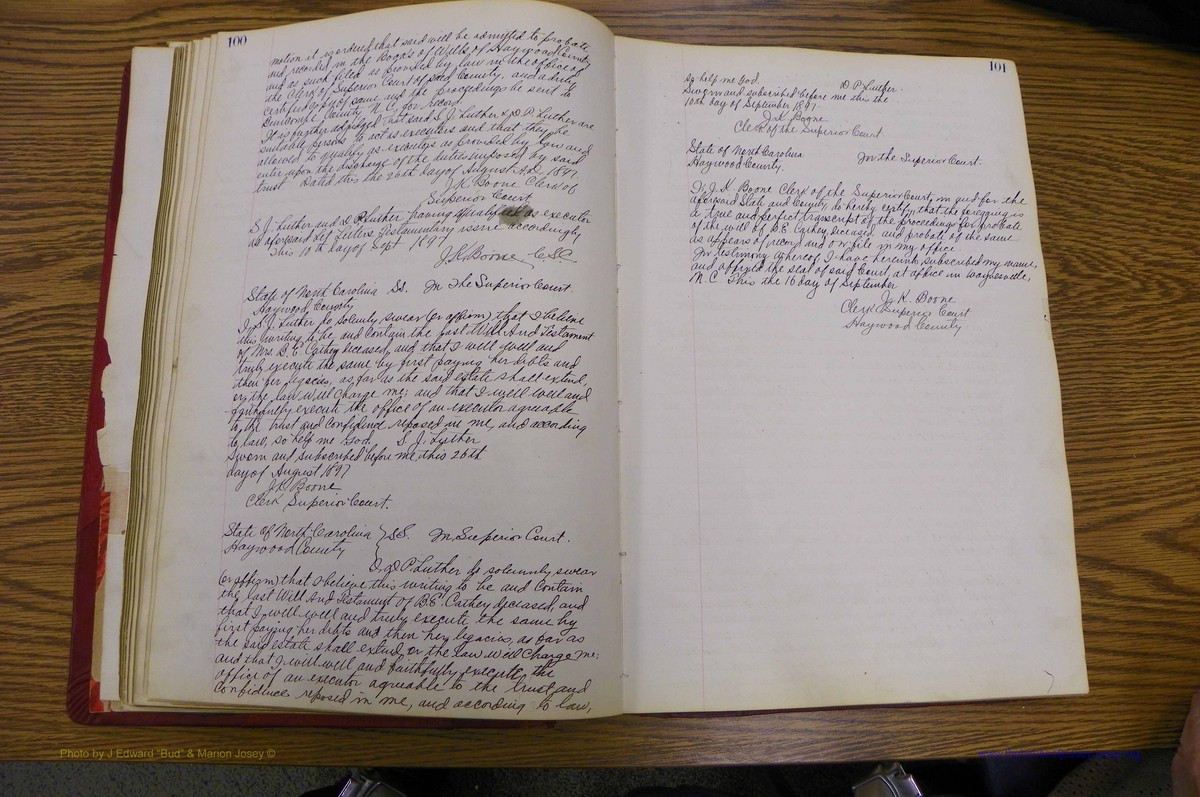 100
motion it is ordered that said will be admitted to probate
and recorded in the Books of Wills of Haywood County
and as such filed as provided by law in the office of
the Clerk of Superior Court of said County, and a duly
certified copy of same and the proceedings be sent to
Buncombe County N.C. for record.
It is further adjudged that said S. J. Luther & D P Luther are
suitable persons to act as executors and that they be
allowed to qualify as executors as provided by law and
enter upon the discharge of the duties imposed by said
trust Dated this the 26th day of August A.D. 1897.
J. K. Boone Clerk of
Superior Court
S J. Luther and D P Luther having qualified as executor
as aforesaid let Letters Testamentary issue accordingly
This 10th day of Sept 1897
J. K. Boone, C.S.C.
State of North Carolina SS. In The Superior Court.
Haywood County
I, S. J. Luther do solemnly swear (or affirm) that I believe
this writing to be, and contain the last Will And Testament
of Mrs. B. E. Cathey deceased, and that I will well and
truly execute the same by first paying her debts and
then her legacies, as far as the said estate shall extend,
or the law will charge me; and that I will well and
faithfully execute the office of an executor agreeable
to the trust and confidence reposed in me, and according
to law, so help me God. S. J. Luther
Sworn and subscribed before me, this 26th
day of August 1897
J. K. Boone
Clerk Superior Court.
State of North Carolina } SS. In Superior Court.
Haywood County
I, D. P. Luther do solemnly swear
(or affirm) that I believe this writing to be and contain
the last Will And Testament of B.E. Cathey deceased, and
that I will well and truly execute the same by
first paying her debts and then her legacies, as far as
the said estate shall extend or the law will charge me;
and that I will well and faithfully execute the
office of an executor agreeable to the trust and
confidence reposed in me, and according to law,
101
so help me God. D. P. Luther.
Sworn and subscribed before me this the
10th day of September 1897
J. K. Boone
Clerk of the Superior Court
State of North Carolina In the Superior Court.
Haywood County.
I, J. K. Boone Clerk of the Superior Court, in and for the
aforesaid State and County, do hereby certify, that the foregoing is
a true and perfect transcript of the proceedings for probate
of the will of B E Cathey, deceased and probate of the same
as appears of record and on file in my office.
In testimony whereof I have hereunto subscribed my name,
and affixed the seal of said Court, at office in Waynesville,
N. C. This the 16 day of September
J. K. Boone
Clerk Superior Court
Haywood County
Photo by J Edward "Bud" & Marion Josey ©